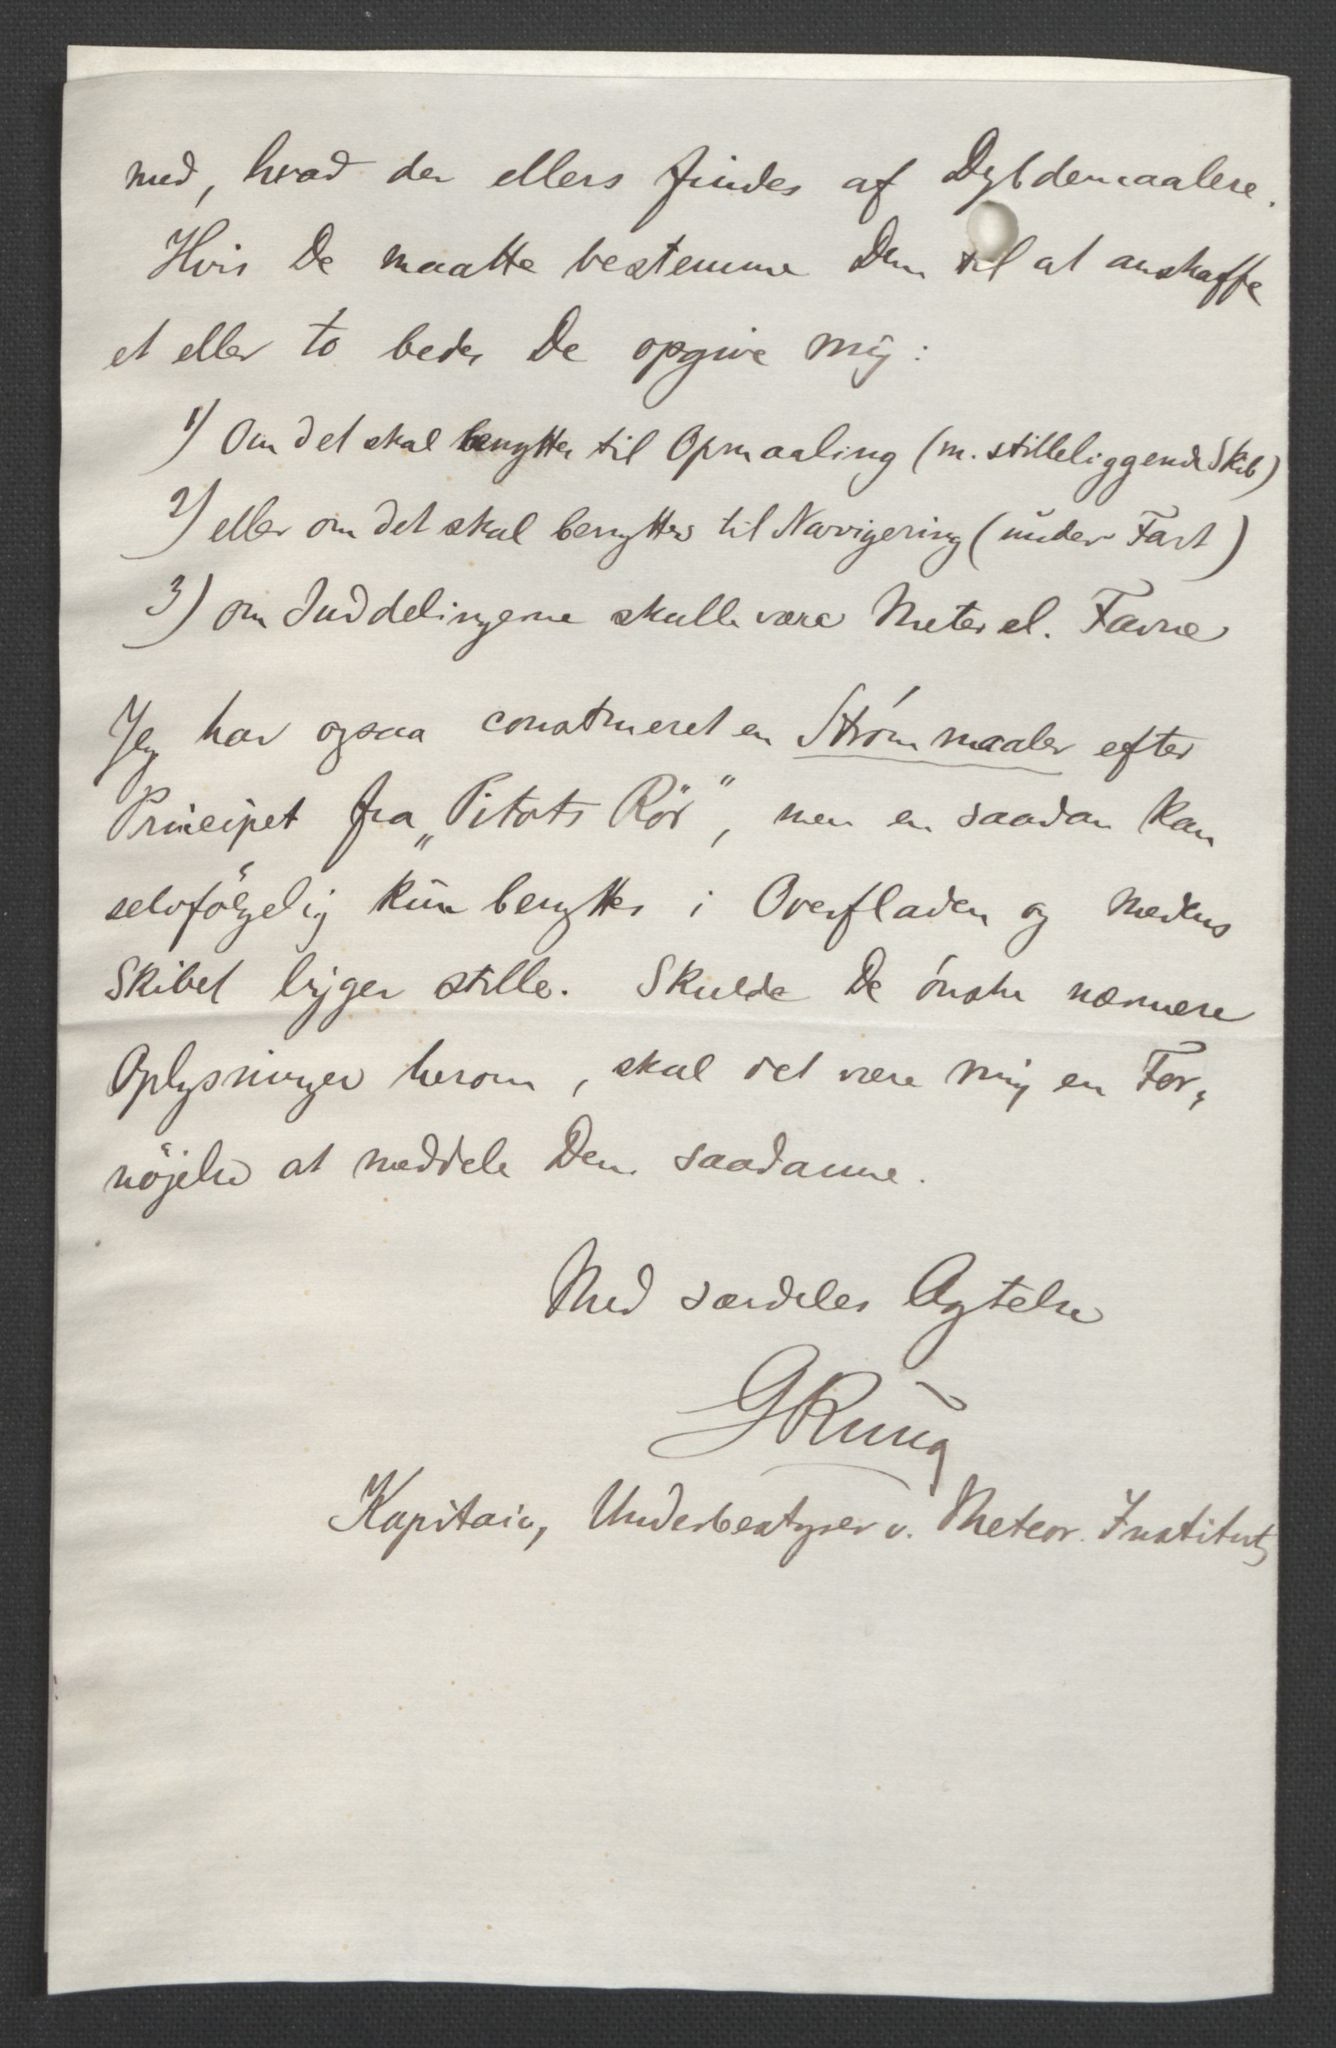 med, hvad der ellers findes af Dybdemaalere.
Hvis De maatte bestemme Dem til at anskaffe
et eller to bedes De opgive mig:
1) Om det skal benyttes til Opmaaling (m. stilleliggende Skib)
2) eller om det skal benyttes til Navigering (under Fart)
3) om Inddelingerne skulle være Meter el. Favne
Jeg har ogsaa construeret en Strømmaaler efter
Principet fra „Pitots Rör”, men en saadan kan
selvfölgelig kun benyttes i Overfladen og medens
Skibet ligger stille. Skulde De ønske nærmere
Oplysninger herom, skal det være mig en For„
nöjelse at meddele Dem saadanne.
Med særdeles Agtelse
GRung
Kapitain, Underbestyrer v. Meteor. Institut